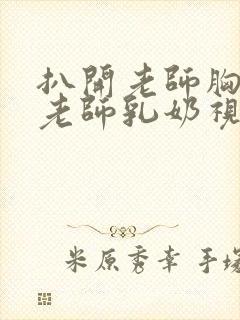 扒開老師胸
老師乳奶視
米原秀幸 手塚